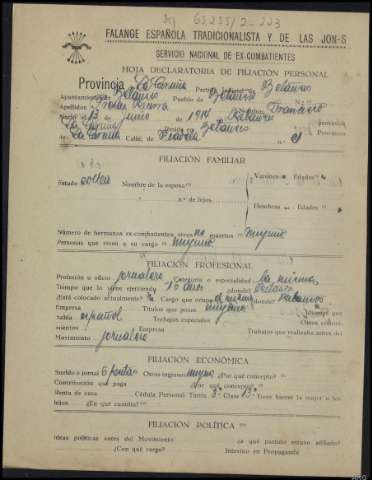 65235/2-223
FALANGE ESPAÑOLA TRADICIONALISTA Y DE LAS JON-S
SERVICIO NACIONAL DE EX-COMBATIENTES
HOJA DECLARATORIA DE FILIACIÓN PERSONAL
Provincia La Coruña Partido Betanzos
Ayuntamiento Betanzos Pueblo de Betanzos
Apellidos Nombre Francisco
Nació el 13 de Junio de 1914 Provincia
La Coruña Betanzos Provincia
La Coruña Calle, de n.º
FILIACIÓN FAMILIAR
Estado soltero Nombre de la esposa Varones Edades
» n.º de hijos. Hembras Edades
Número de hermanos ex-combatientes, otros no muertos ninguno
Personas que viven a su cargo ninguno
FILIACIÓN PROFESIONAL
Profesión u oficio jornalero Categoría o especialidad la misma
Tiempo que la viene ejerciendo 10 años ¿dónde?
¿Está colocado actualmente? Cargo que ocupa el mismo Betanzos
Empresa Títulos que posee ninguno Idiomas que
habla español Trabajos especiales Otros conoci-
mientos Empresa Trabajos que realizaba antes del
Movimiento jornalero
FILIACIÓN ECONÓMICA
Sueldo o jornal 6 pesetas Otros ingresos ninguno ¿Por qué concepto?
Contribución que paga ¿Por qué concepto?
Renta de casa Cédula Personal Tarifa 3ª Clase 13ª Tiene hecha la mujer o los
hijos ¿En qué cuantía?
FILIACIÓN POLÍTICA
Ideas políticas antes del Movimiento ¿a qué partido estuvo afiliado?
¿Con qué cargo? Intervino en Propaganda